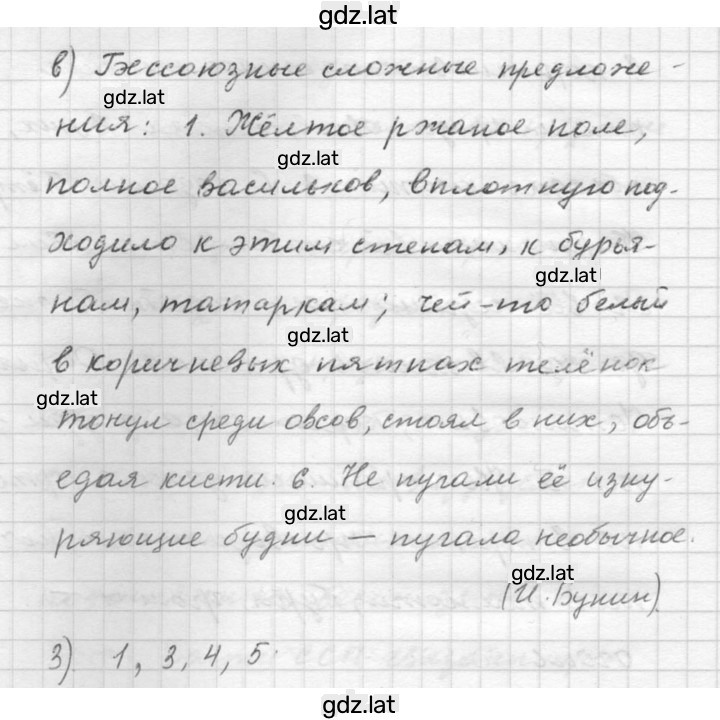 gdz.lat
в) Бессоюзные сложные предложе-
gdz.lat
ния: 1. Жёлтое ржаное поле,
gdz.lat
полное васильков, вплотную под-
ходило к этим стенам, к бурья-
gdz.lat
нам, татаркам; чей-то белый
gdz.lat
в коричневых пятнах телёнок
gdz.lat
тонул среди овсов, стоял в них, объ-
едая кисти. 6. Не пугали её изну-
gdz.lat
ряющие будни — пугала необычное.
gdz.lat
(И. Бунин)
3) 1, 3, 4, 5.
gdz.lat